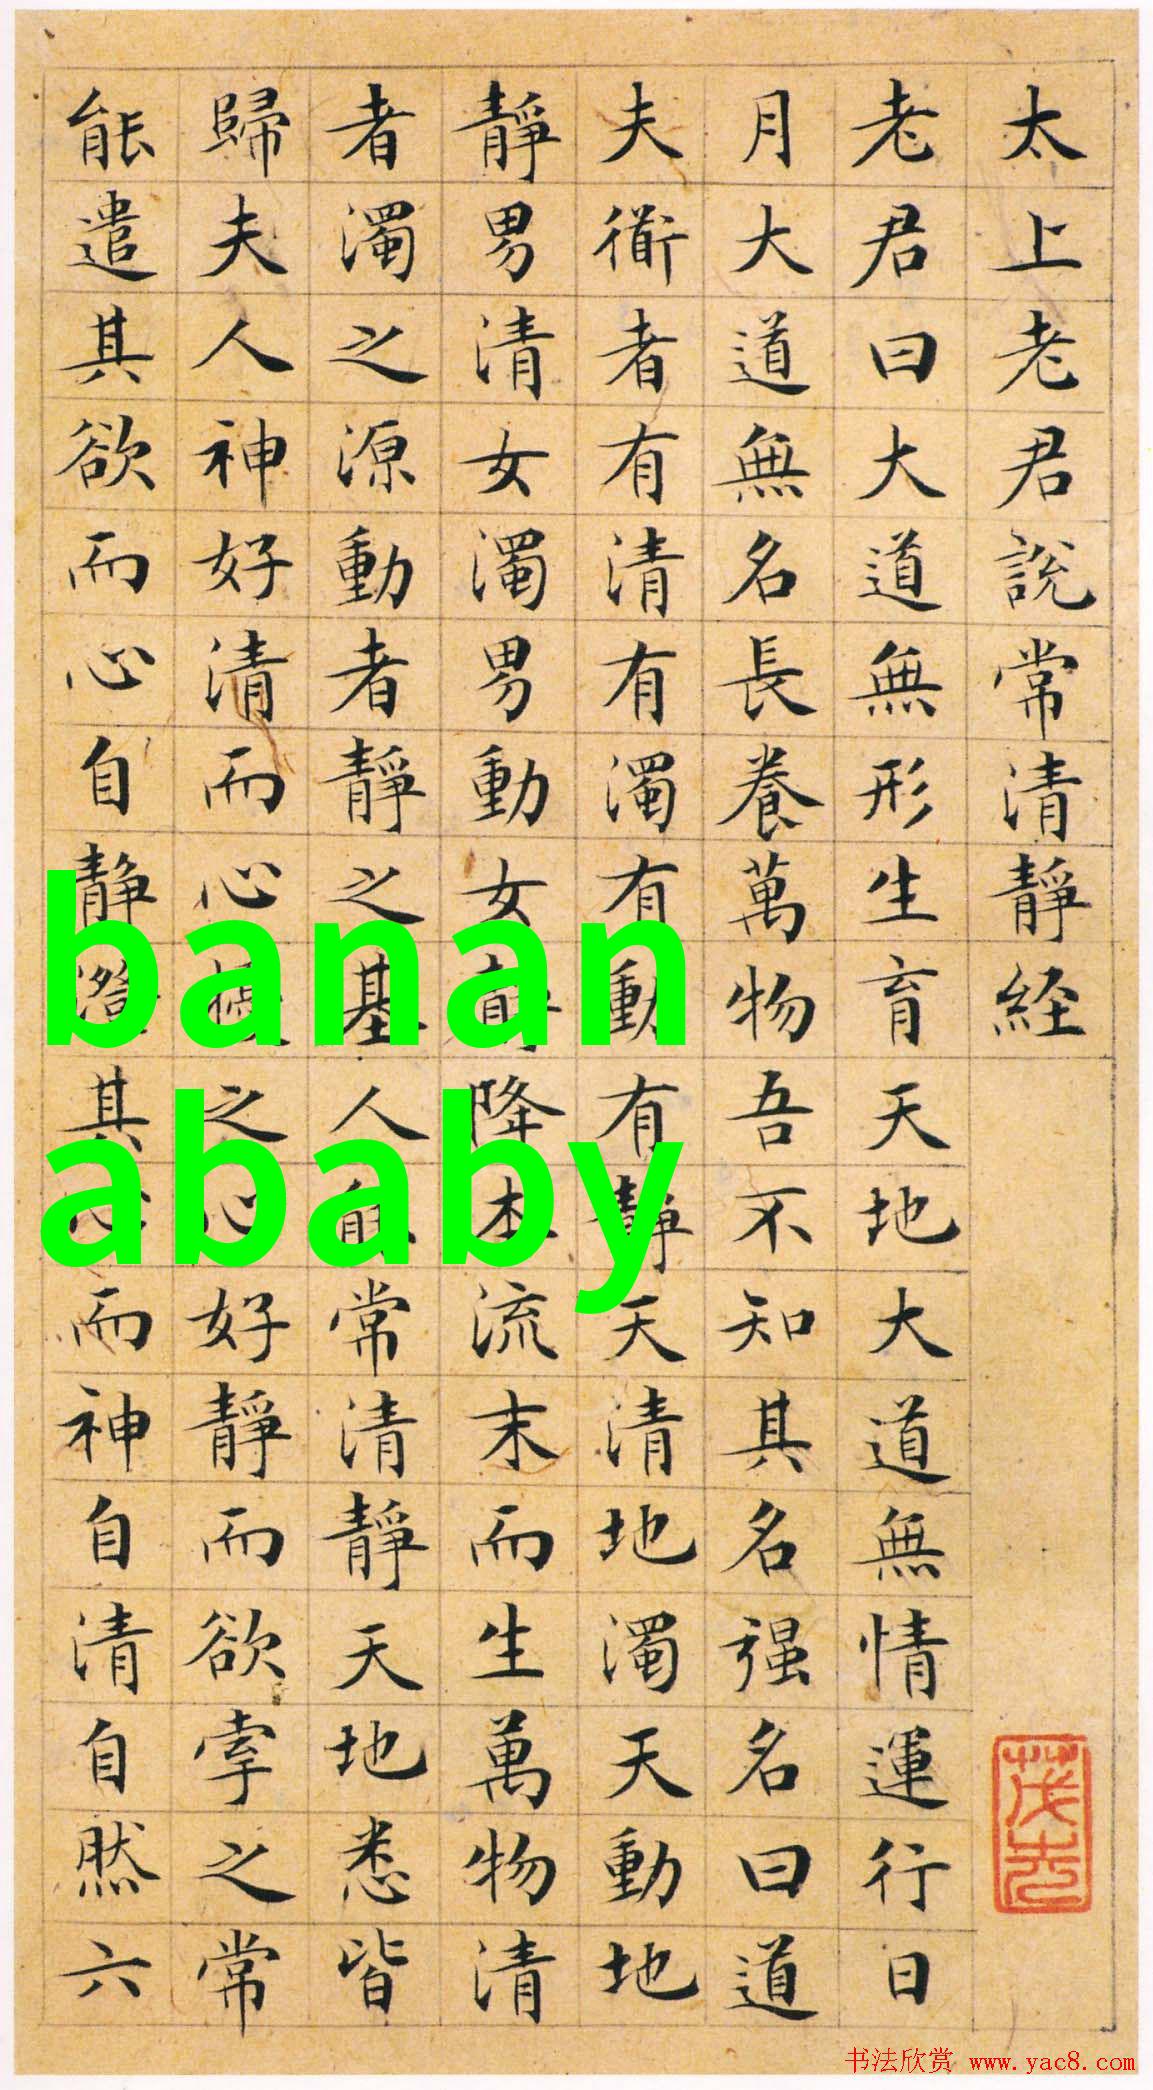 太上老君說常清靜経
老君曰大道無形生育天地大道無情運行日
月大道無名長養萬物吾不知其名强名曰道
夫衜者有清有濁有動有靜天清地濁天動地
靜男清女濁男動女靜降本流末而生萬物清
者濁之源動者靜之基人能常清靜天地悉皆
歸夫人神好清而心擾之心好靜而欲牽之常
能遣其欲而心自静澄其心而神自清自然六
banan
ababy
书法欣赏 www.yac8.com